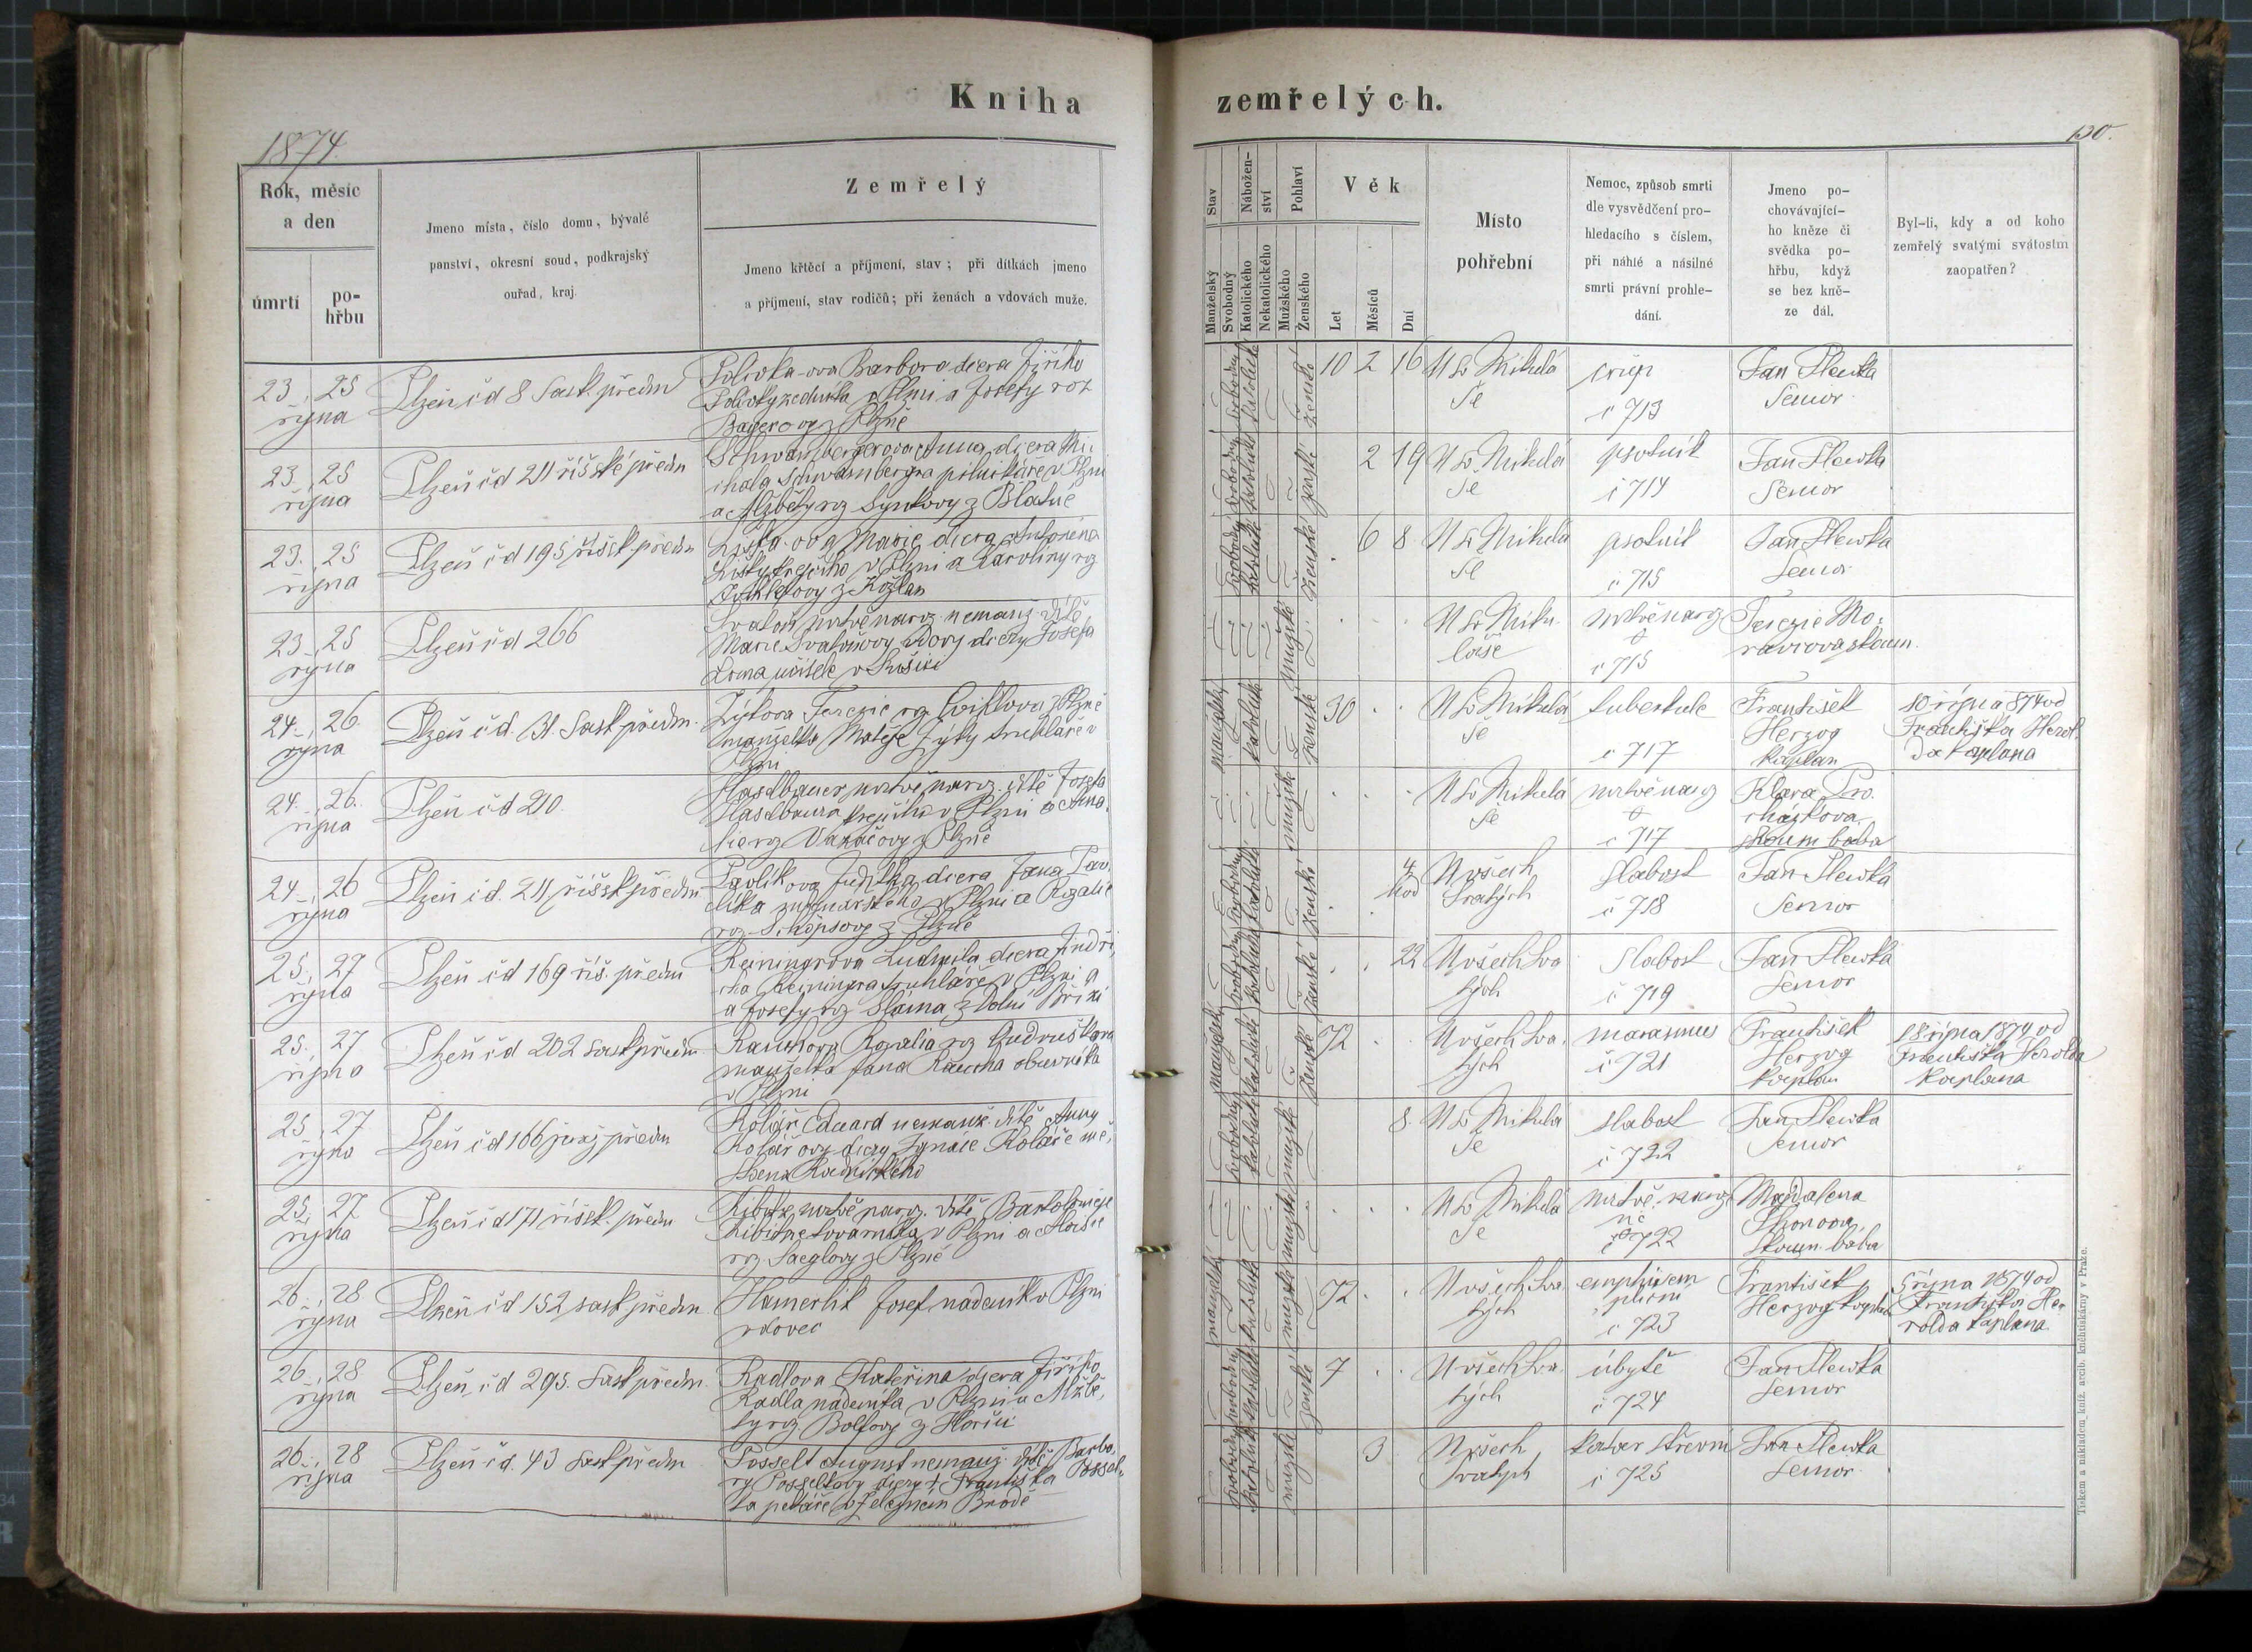 Kniha
zemřelých.
1874
130.
Rok, měsíc
a den
úmrtí
po-
hřbu
Jmeno místa, číslo domu, bývalé
panství, okresní soud, podkrajský
ouřad, kraj.
Zemřelý
Jmeno křtěcí a příjmení, stav; při dítkách jmeno
a příjmení, stav rodičů; při ženách a vdovách muže.
Stav
Nábožen-
ství
Pohlaví
Věk
Manželský
Svobodný
Katolického
Nekatolického
Mužského
Ženského
Let
Měsíců
Dní
Místo
pohřební
Nemoc, způsob smrti
dle vysvědčení pro-
hledacího s číslem,
při náhlé a násilné
smrti právní prohle-
dání.
Jmeno po-
chovávající-
ho kněze či
svědka po-
hřbu, když
se bez kně-
ze dál.
Byl-li, kdy a od koho
zemřelý svatými svátostm
zaopatřen?
23. 25
října
Plzeň čd 8 Sask. předm
Polivka-ova Barbora dcera Jiřího
Polivky zedníka v Plzni a Josefy roz
Bayerovy z Plzně
svobodný katolické ženské
10 2 16
U Sv Mikulá
še
č 713
Jan Slewka
Senior
23. 25
října
Plzeň čd 211 říšské předm
Schwambergrova Anna dcera Mi
chala Schwambergra pilnikáře v Plzni
a Alžběty roz z Blatné
ženské
2 19
U Sv Mikulá
še
psotník
č 714
Jan Slewka
Senior
23. 25
října
Plzeň čd 195 říšsk. předm
Liška-ova Marie dcera Antonína
Lišky krejčího v Plzni a Karoliny rz
z Kožlan
ženské
6 8
U Sv Mikulá
še
psotník
č 715
Jan Slewka
Senior
23. 25
října
Plzeň čd 266
Svatoň mrtvě naroz. nemanž. dítě
Marie Svatoňovy vdovy dcery Josefa
učitele v Sušici
mužské
U Sv Miku
láše
mrtvě naroz
č 715
Terezie Mo-
ravcova zkoum.
24. 26.
října
Plzeň čd. 31. Sask předm.
Zýkova Terezie rz z Plzně
manželka Matěje Zýky truhláře v
Plzni
manželský katolické ženské
30
U Sv Mikulá
še
tuberkule
č 717
František
Herzog
kaplan
10 října 874 od
Františka Herol
da kaplana
24. 26.
října
Plzeň čd 210.
Haselbauer mrtvě naroz. dítě Josefa
Haselbaura krejčího v Plzni a Ama-
lie rz Vaňáčovy z Plzně
mužské
U Sv Mikulá
še
mrtvě naroz
č 717
Klara Pro-
cházkova
zkoum baba
24. 26
října
Plzeň čd. 211 říšsk předm
Pavlíkova Juditha dcera Jana Pav
líka v Plzni a Rozalie
roz. z Plzně
ženské
4
hod
U všech
Svatých
Slabost
č 718
Jan Slewka
Senior
25. 27
října
Plzeň čd 169 říš. předm
Reiningrova Ludmila dcera Jindři
cha Reiningra truhláře v Plzni
a Josefy rz Sláma z Dolní
ženské
22
U všech Sva
tých
Slabost
č 719
Jan Slewka
Senior
25. 27
října
Plzeň čd 202 Sask předm
Rauchova Rozalia rz Ondrušková
manželka Jana Raucha obuvníka
v Plzni
manželský ženské
72
U všech Sva
tých
marasmus
č 721
František
Herzog
kaplan
18 října 1874 od
Františka Herolda
kaplana
25. 27
října
Plzeň čd 166 praž předm
Kolář Eduard nemanž. dítě Anny
Kolářovy dcery Ignace Koláře mě-
šťana Radnického
svobodný katolické mužské
8.
U Sv Mikulá
še
slabost
č 722
Jan Slewka
Senior
25. 27
října
Plzeň čd 171 říšsk. předm
mrtvě naroz. dítě Bartoloměje
v Plzni a Marie
rz. z Plzně
mužské
U Sv Mikulá
še
mrtvě naroz
né
č 722
Magdalena
zkoum. baba
26. 28
října
Plzeň čd 152 sask předm.
Hamerlik Josef nadeník v Plzni
vdovec
manželský katolické mužské
72.
U všech Sva
tých
emphisem
plicní
č 723
František
Herzog kaplan
5 října 1874 od
Františka He-
rolda kaplana
26. 28
října
Plzeň čd 295. Sask předm.
Radlova Kateřina dcera Jiřího
Radla nadeníka v Plzni a Alžbě-
ty rz.
ženské
7
U všech Sva
tých
úbytě
č 724
Jan Slewka
Senior
26. 28
října
Plzeň čd. 43 Sask předm
Posselt August nemanž. dítě Barbo-
ry Posseltovy dcery † Františka Possel-
ta pekaře v Železném Brodě
svobodný katolické mužské
3
U všech
Svatých
katar střevní
č 725
Jan Slewka
Senior
Tiskem a nákladem kníž. arcib. knihtiskárny v Praze.